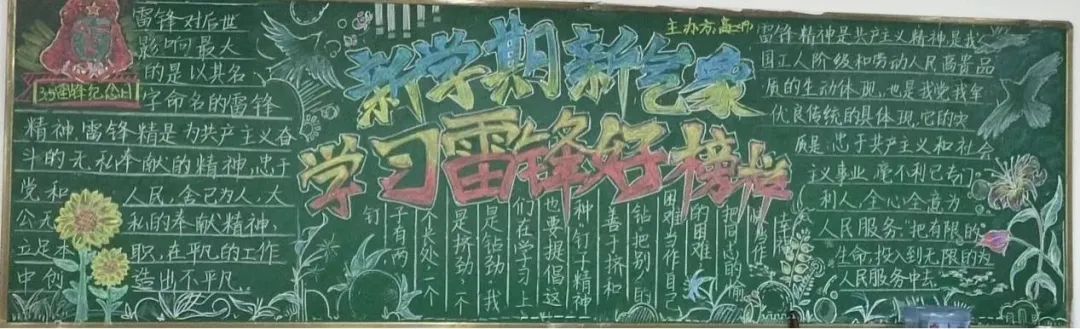 主办方:高一
新学期 新气象
学习雷锋好榜样
3.5雷锋纪念日
雷锋对后世
影响最大
的是以其名
字命名的雷锋
精神雷锋精是为共产主义奋
斗的无私奉献的精神,忠于
党和人民,舍己为人,大
公无私的奉献精神,
立足本职,在平凡的工作
中创造出不平凡
把同志的愉
的困难
困难当作自己
钻,把别的
善于挤和
种“钉子精神
也要提倡这
们在学习上
是钻劲,我
是挤劲,个
个长处,一个
子有两
钉
雷锋精神是共产主义精神是我
国工人阶级和劳动人民高贵品
质的生动体现,也是我党我军
优良传统的具体现,它的实
质是:忠于共产主义和社会
议事业,毫不利己专门
利人,全心全意为
人民服务“把有限的
生命,投入到无限的为
人民服务中去